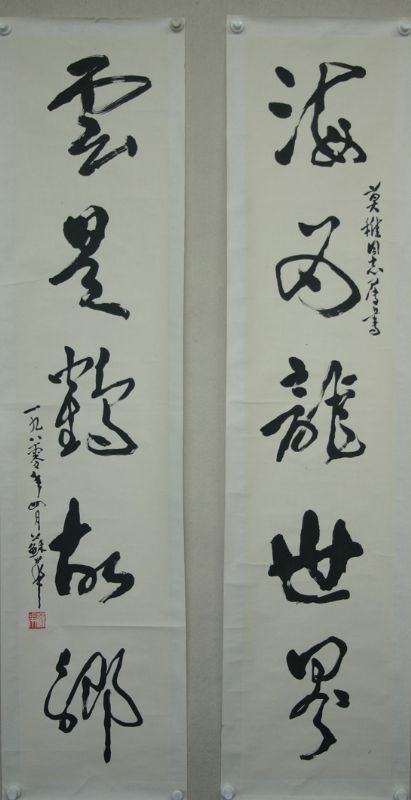 海為龍世界
莫稚同志屬書
雲是鶴故鄉
一九八零年四月蘇華